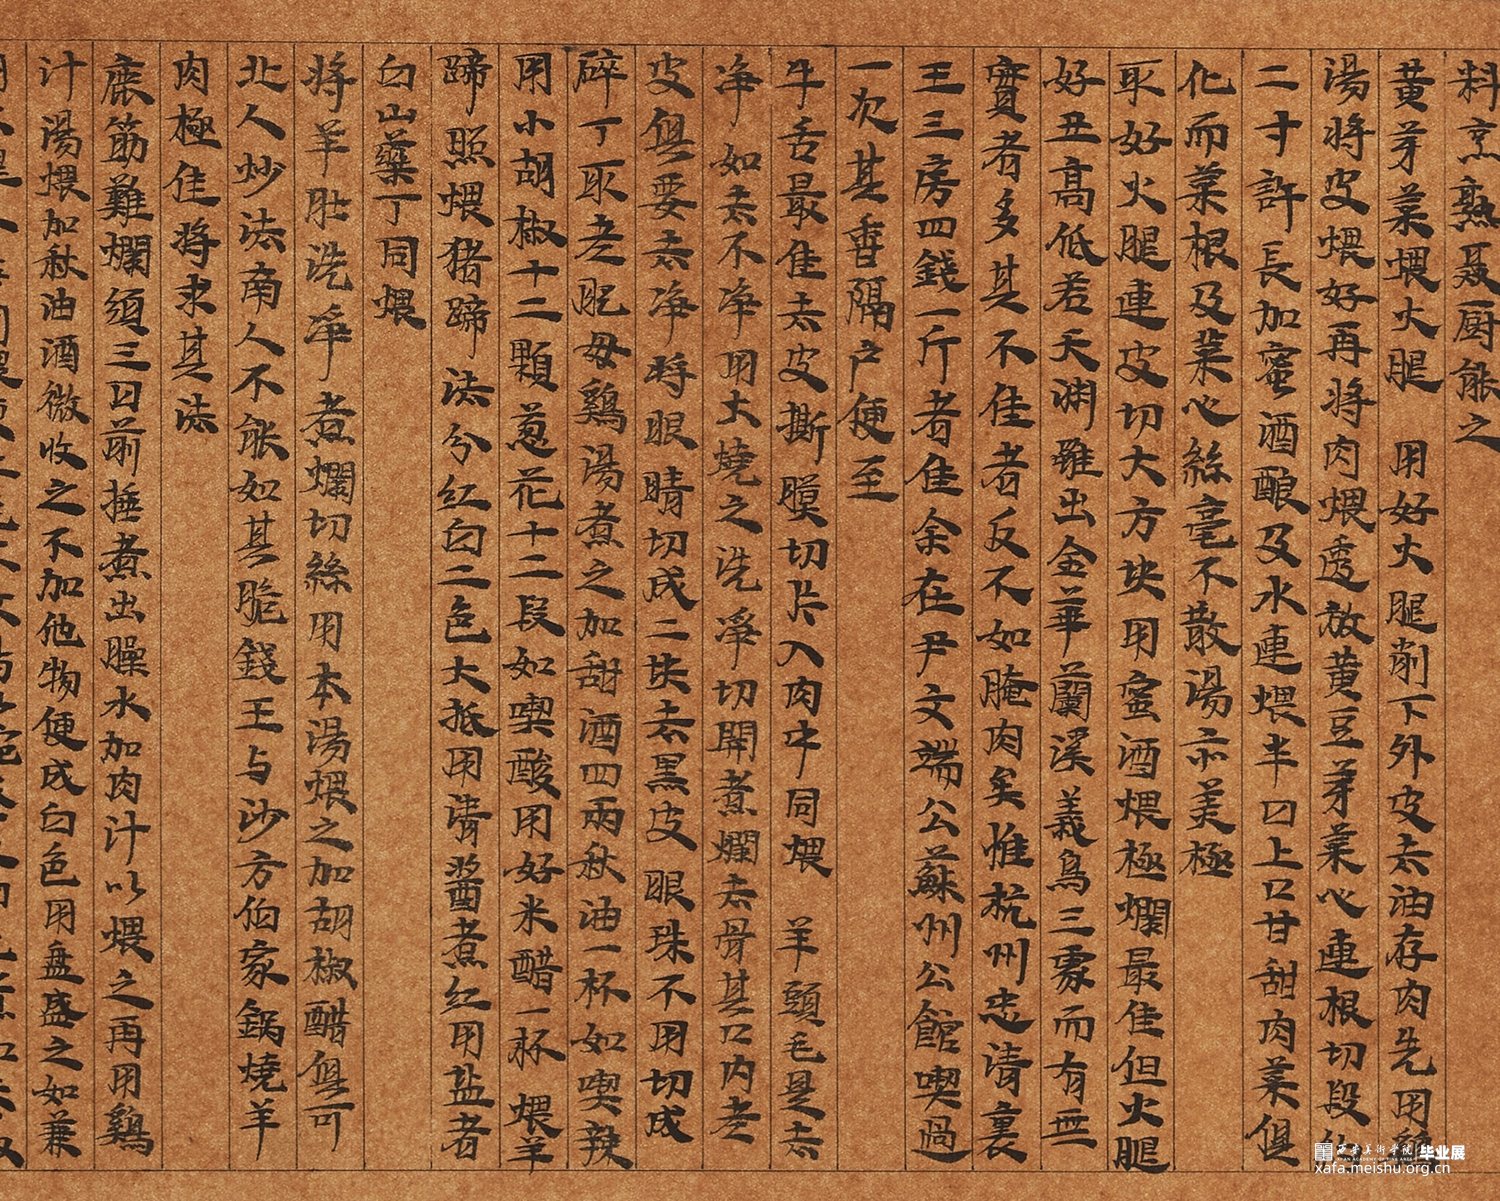 料烹熟聂厨能之
黄芽菜煨火腿　用好火腿削下外皮去油存肉先用
湯將皮煨好再將肉煨透放黄豆芽菜心連根切段
二寸許長加蜜酒酿及水連煨半日上口甘甜肉菜俱
化而菜根及菜心絲毫不散湯亦美極
取好火腿連皮切大方块用蜜酒煨極爛最佳但火腿
好丑高低若天渊雖出金華蘭溪義烏三處而有無
實者多其不佳者反不如腌肉矣惟杭州忠清裏
王三房四錢一斤者佳余在尹文端公蘇州公館喫過
一次其香隔户便至
牛舌最佳去皮撕膜切片入肉中同煨　羊頭毛是去
净如去不净用火燒之洗净切開煮爛去骨其口内老
皮俱要去净將眼睛切成二块去黑皮眼珠不用切成
碎丁取老肥母鷄湯煮之加甜酒四兩秋油一杯如喫辣
用小胡椒十二顆葱花十二段如喫酸用好米醋一杯　煨羊
蹄照煨猪蹄法分红白二色大抵用清醬煮红用盐者
白山藥丁同煨
將羊肚洗净煮爛切絲用本湯煨之加胡椒醋俱可
北人炒法南人不能如其脆錢王与沙方伯家鍋燒羊
肉極佳將求其法
鹿筋難爛須三日前捶煮出臊水加肉汁以煨之再用鷄
汁湯煨加秋油酒微收之不加他物便成白色用盘盛之如兼
西安美術学院毕业展
xafa.meishu.org.cn